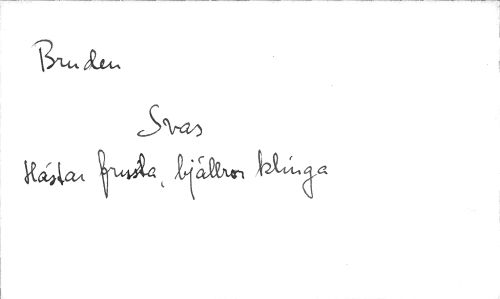 Bruden
Svas
Hästar frusta, bjällror klinga